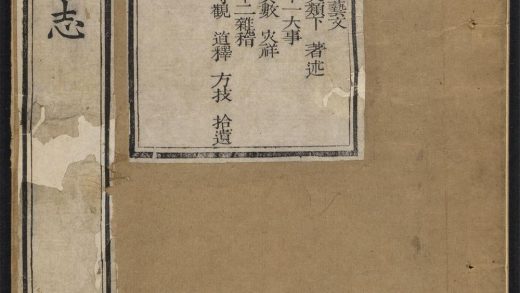 藝文
類下 著述
一大事
災祥
二雜稽
觀 道釋 方技 拾遺
志